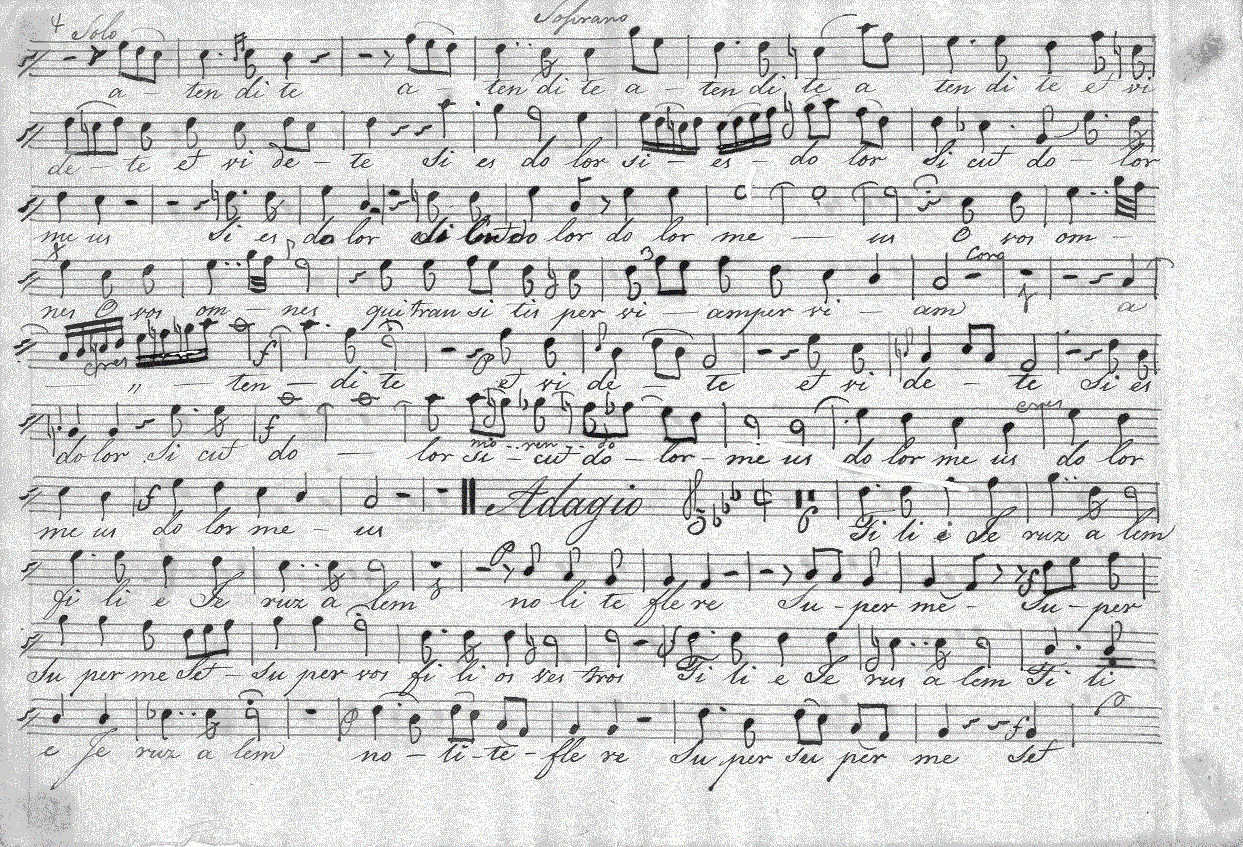 4 Solo Soprano
a - ten di te a - ten di te a - ten di te a ten di te et vi
de - te et vi de - te Si es do lor si - es - do lor Si cut do - lor
me us Si es do lor do lor do lor me — us O vos om -
Cora
nes O vos om - nes qui tran si tis per vi - am per vi - am a
cres f p
— " — ten - di te et vi de - te et vi de - te Si es
f cres
mo - ren - do
do lor Si cut do — lor si - cut do - lor - me us do lor me us do lor
f Adagio
me us do lor me - us Fi li e Je ruz a lem
p f
fi li e Je ruz a lem no li te fle re Su - per me - Su - per
Su per me Set - su per vos fi li os ves tros Fi li e Je rus a lem Fi li
p f p
e Je ruz a lem no - li - te - fle re Su per su per me Set